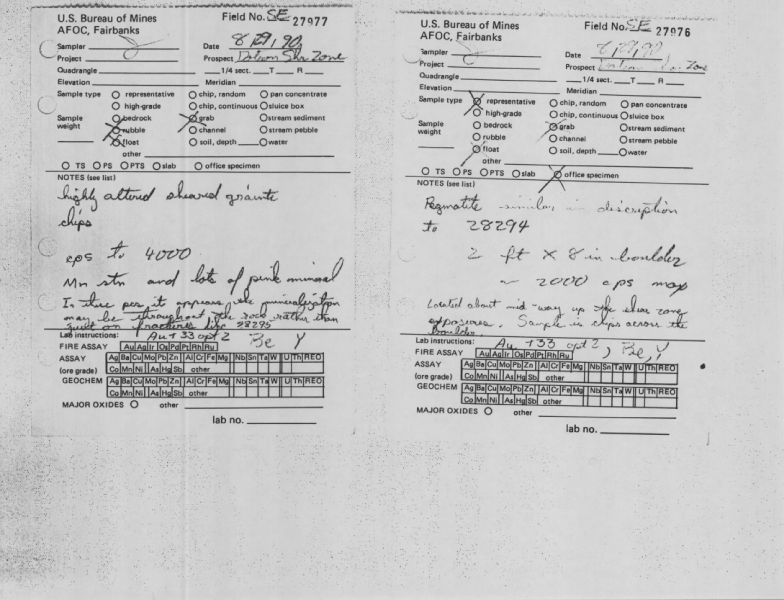 U.S. Bureau of Mines
AFOC, Fairbanks
Field No. SE 27977
Sampler
Date 8,29,90
Project
Prospect Dotson Shr Zone
Quadrangle 1/4 sect. T R
Elevation Meridian
Sample type representative chip, random pan concentrate
high-grade chip, continuous sluice box
Sample weight bedrock grab stream sediment
rubble channel stream pebble
float soil, depth water
other
TS PS PTS slab office specimen
NOTES (see list)
highly altered sheared granite
chips
cps to 4000
Mn stn and lots of pink mineral
In this it appears the mineralization
may be throughout the rock rather than
just on fractures like 28295
Lab instructions: Au + 33 opt 2 Be Y
FIRE ASSAY Au Ag Ir Os Pd Pt Rh Ru
ASSAY Ag Ba Cu Mo Pb Zn Al Cr Fe Mg Nb Sn Ta W U Th REO
(ore grade) Co Mn Ni As Hg Sb other
GEOCHEM Ag Ba Cu Mo Pb Zn Al Cr Fe Mg Nb Sn Ta W U Th REO
Co Mn Ni As Hg Sb other
MAJOR OXIDES other
lab no.
U.S. Bureau of Mines
AFOC, Fairbanks
Field No. SE 27976
Sampler
Date 8,29,90
Project
Prospect Dotson Shr Zone
Quadrangle 1/4 sect. T R
Elevation Meridian
Sample type representative chip, random pan concentrate
high-grade chip, continuous sluice box
Sample weight bedrock grab stream sediment
rubble channel stream pebble
float soil, depth water
other
TS PS PTS slab office specimen
NOTES (see list)
Pegmatite similar in discription
to 28294
2 ft x 8 in boulder
~ 2000 cps max
Located about mid-way up the shear zone
exposures. Sample is chips across the
boulder.
Lab instructions: Au + 33 opt 2, Be, Y
FIRE ASSAY Au Ag Ir Os Pd Pt Rh Ru
ASSAY Ag Ba Cu Mo Pb Zn Al Cr Fe Mg Nb Sn Ta W U Th REO
(ore grade) Co Mn Ni As Hg Sb other
GEOCHEM Ag Ba Cu Mo Pb Zn Al Cr Fe Mg Nb Sn Ta W U Th REO
Co Mn Ni As Hg Sb other
MAJOR OXIDES other
lab no.